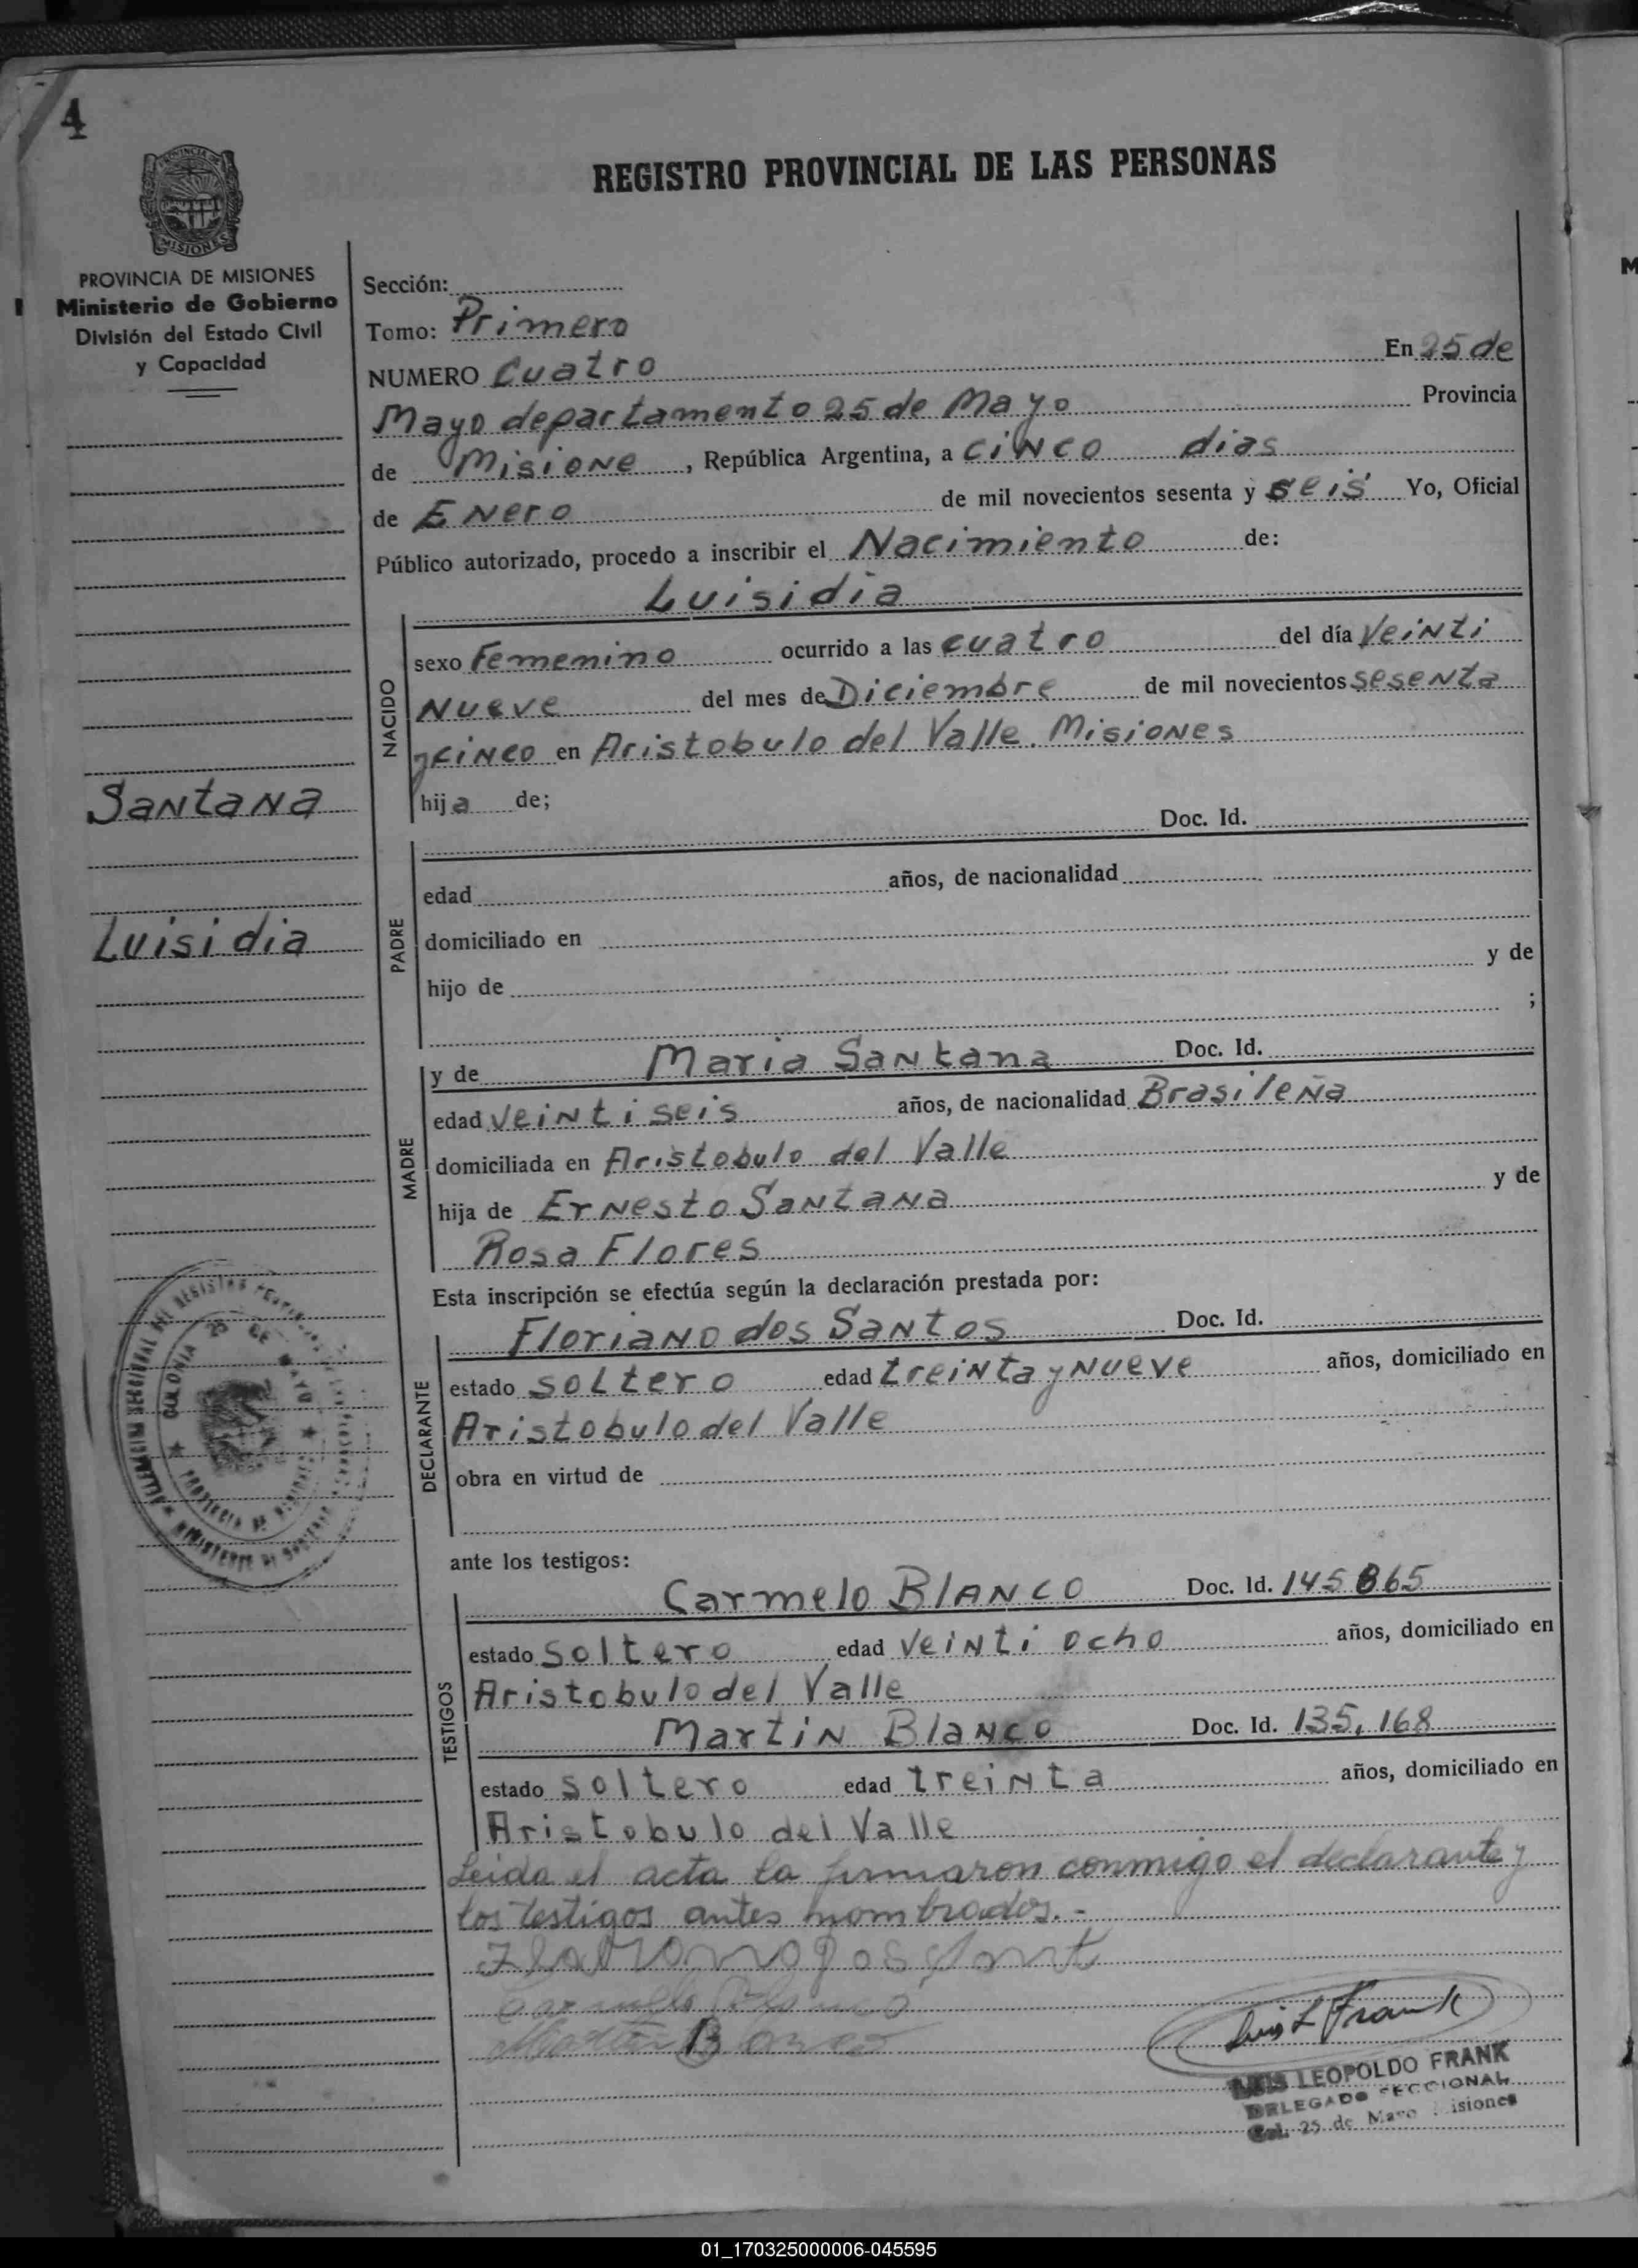 4
REGISTRO PROVINCIAL DE LAS PERSONAS
PROVINCIA DE MISIONES
Ministerio de Gobierno
División del Estado Civil
y Capacidad
Santana
Luisidia
Sección:
Tomo: Primero
NUMERO Cuatro En 25 de
Mayo departamento 25 de Mayo Provincia
de Misione, República Argentina, a cinco dias
de Enero de mil novecientos sesenta y seis Yo, Oficial
Público autorizado, procedo a inscribir el Nacimiento de:
Luisidia
NACIDO
sexo Femenino ocurrido a las cuatro del día Veinti
Nueve del mes de Diciembre de mil novecientos sesenta
y cinco en Aristobulo del Valle. Misiones
hija de;
Doc. Id.
PADRE
edad años, de nacionalidad
domiciliado en
hijo de y de
;
MADRE
y de Maria Santana Doc. Id.
edad veinti seis años, de nacionalidad Brasileña
domiciliada en Aristobulo del Valle
hija de Ernesto Santana y de
Rosa Flores
Esta inscripción se efectúa según la declaración prestada por:
DECLARANTE
Floriano dos Santos Doc. Id.
estado soltero edad treinta y nueve años, domiciliado en
Aristobulo del Valle
obra en virtud de
ante los testigos:
TESTIGOS
Carmelo Blanco Doc. Id. 145865
estado soltero edad veinti ocho años, domiciliado en
Aristobulo del Valle
Martin Blanco Doc. Id. 135,168
estado soltero edad treinta años, domiciliado en
Aristobulo del Valle
Leida el acta la firmaron conmigo el declarante y
los testigos antes nombrados.-
Luis L Frank
LUIS LEOPOLDO FRANK
DELEGADO SECCIONAL
Col. 25 de Mayo Misiones
01_170325000006-045595